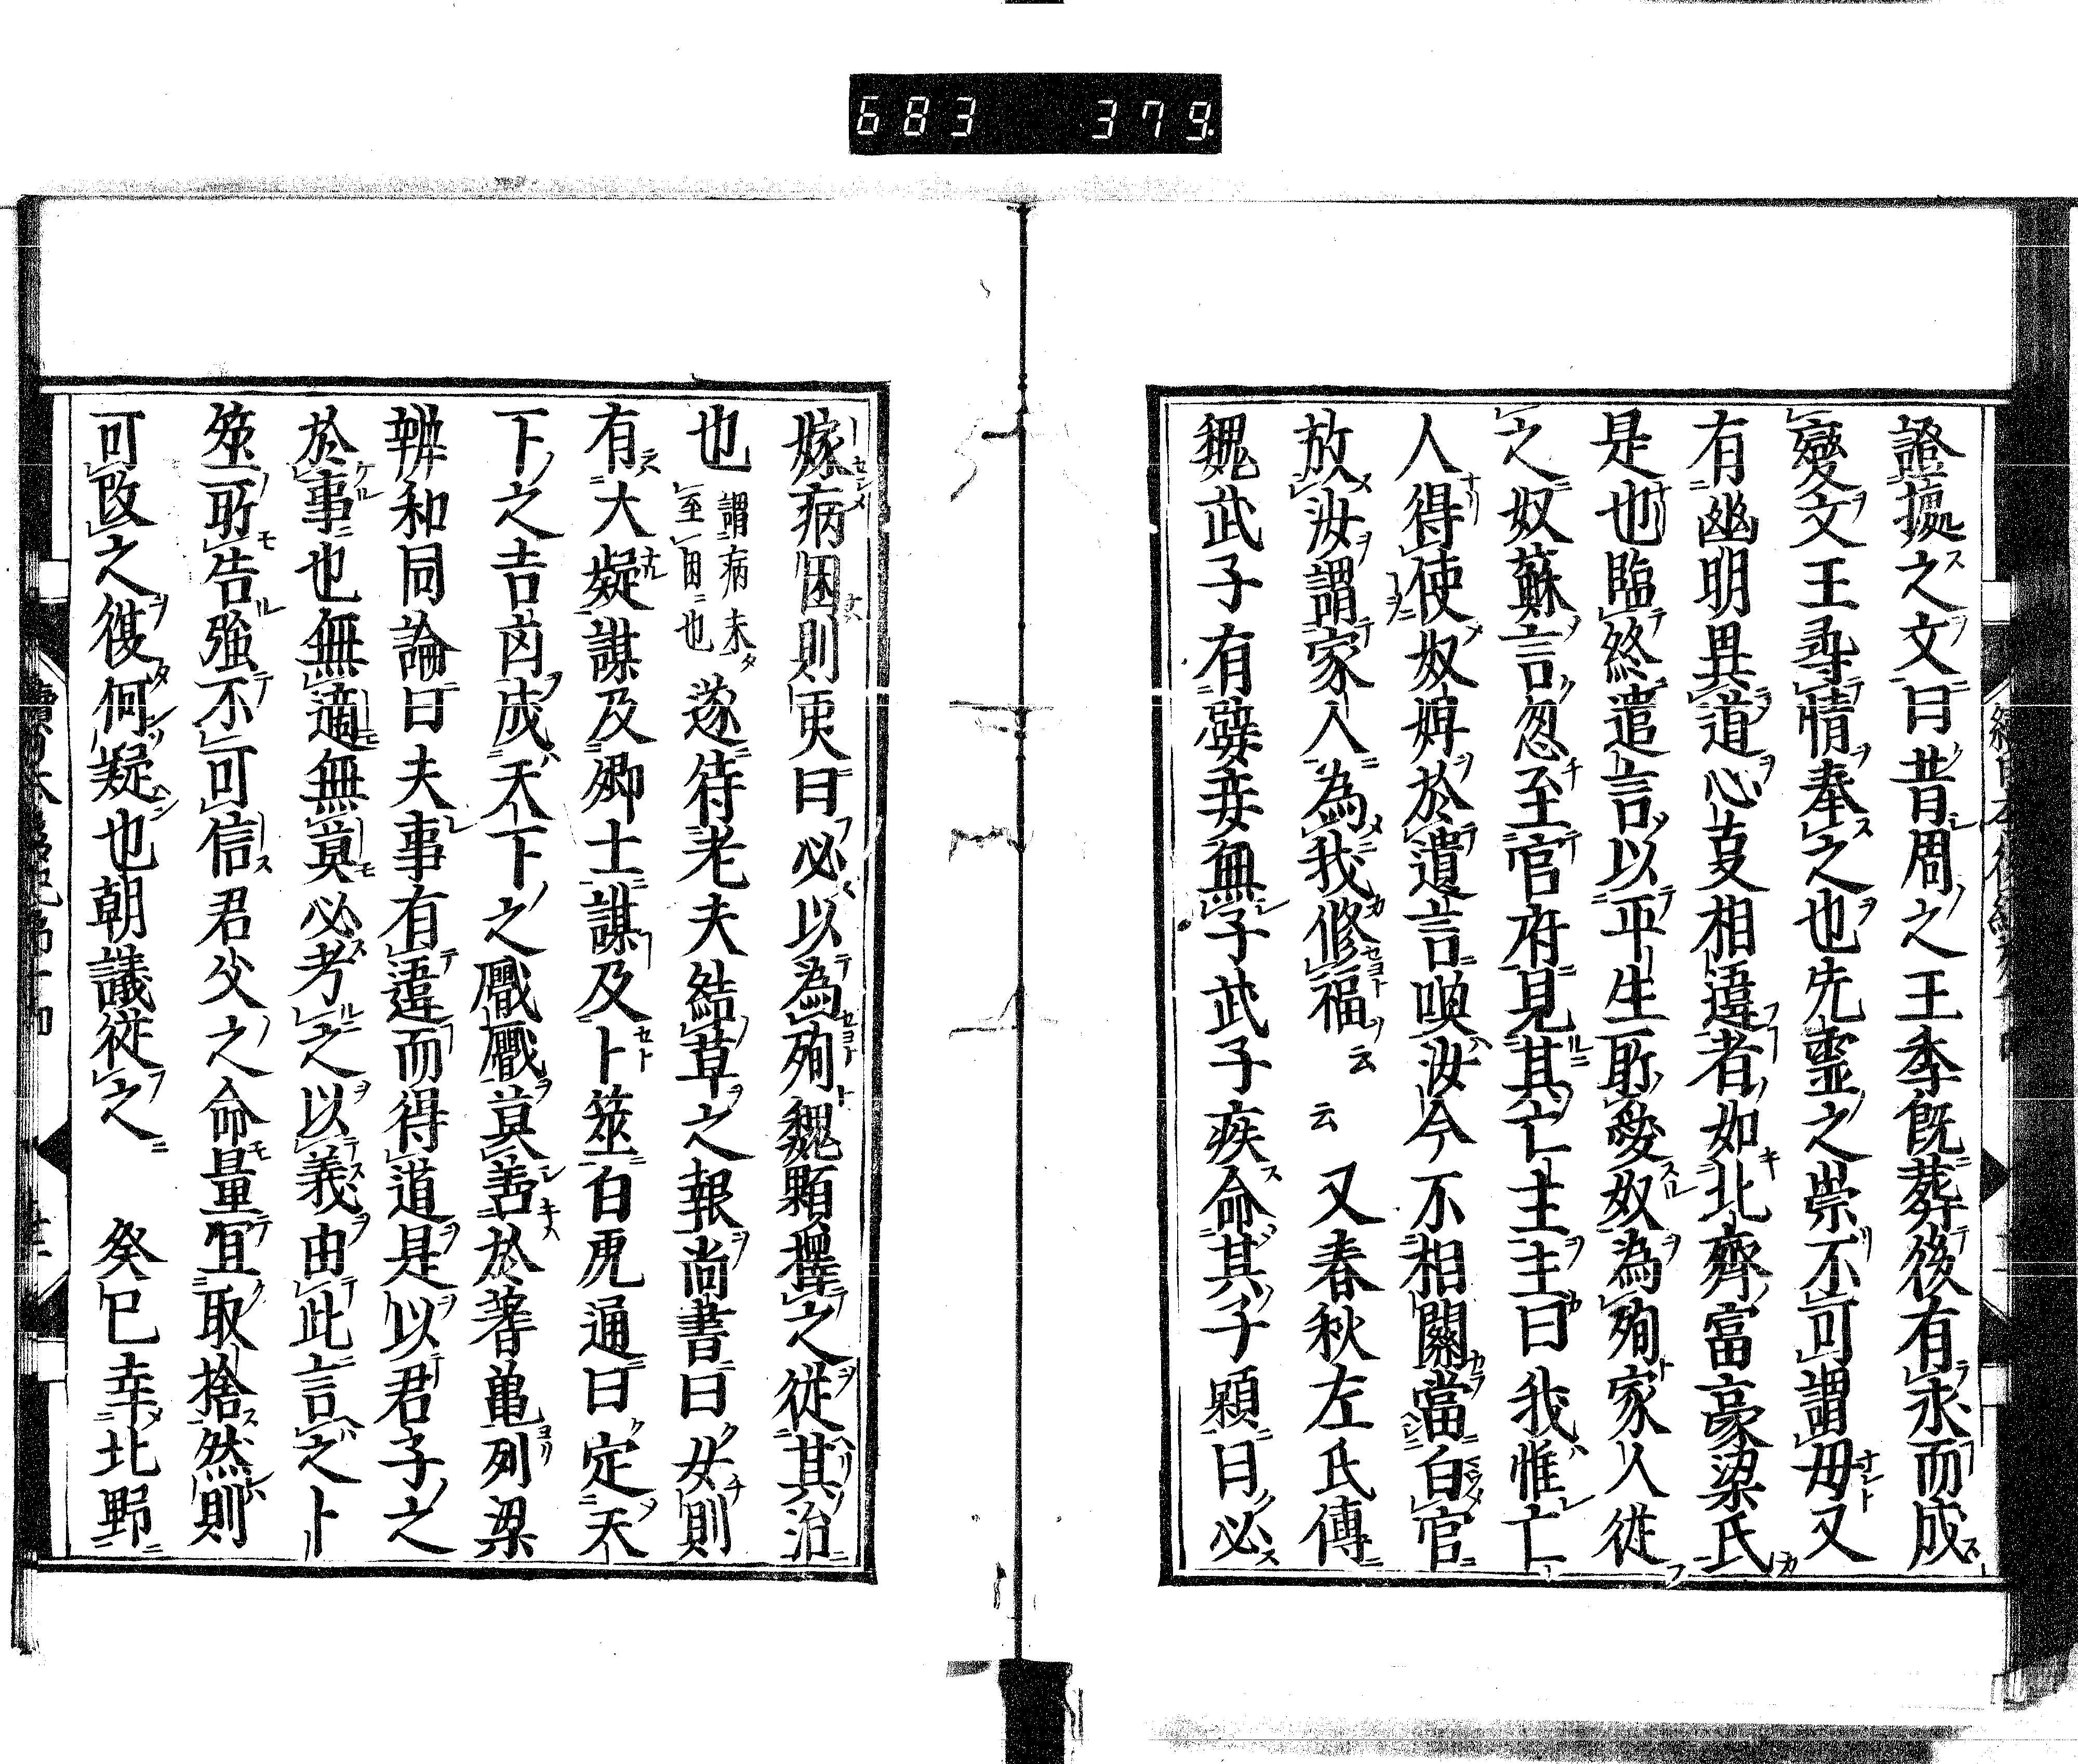 683 379
證據之文曰昔周之王季既葬後有求而成
變文王尋情奉之也先靈之祟不可謂毋又
有幽明異道心事相違者如北齊富豪梁氏
是也臨終遣言以平生所愛奴為殉家人從
之奴蘇言忽至官府見其亡主主曰我惟亡
人得使奴婢於遺言喚汝今不相關當白官
放汝謂家人為我修福云云又春秋左氏傳
魏武子有嬖妾無子武子疾命其子顆曰必
嫁病困則更曰必以為殉魏顆擇之從其治
也謂病未至困也遂待老夫結草之報尚書曰女則
有大疑謀及卿士謀及卜筮白虎通曰定天
下之吉凶成天下之亹亹莫善於蓍龜劉梁
辨和同論曰夫事有違而得道是以君子之
於事也無適無莫必考之以義由此言之卜
筮所告強不可信君父之命量宜取捨然則
可改之復何疑也朝議從之 癸巳幸北野